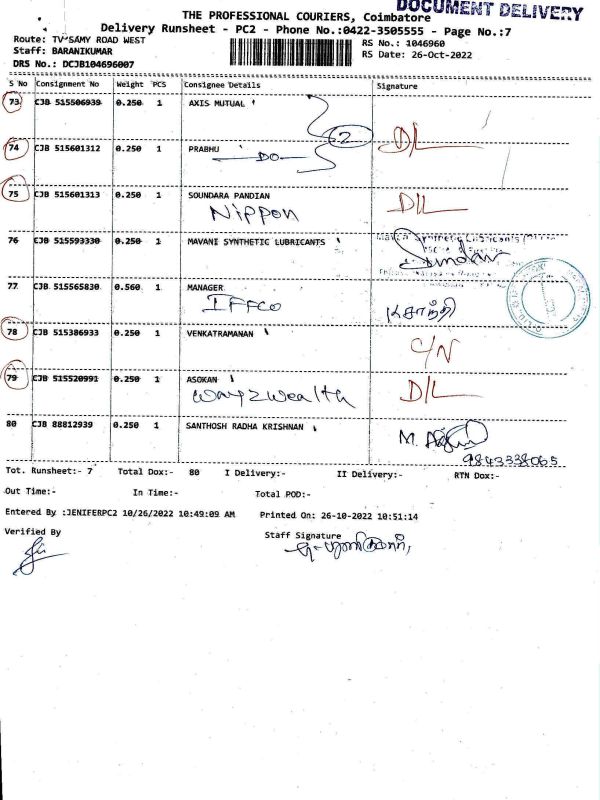 DOCUMENT DELIVERY
THE PROFESSIONAL COURIERS, Coimbatore
Delivery Runsheet - PC2 - Phone No.:0422-3505555 - Page No.:7
Route: TV SAMY ROAD WEST
RS No.: 1046960
Staff: BARANIKUMAR
RS Date: 26-Oct-2022
DRS No.: DCJB104696007
S No Consignment No Weight PCS Consignee Details Signature
73 CJB 515506939 0.250 1 AXIS MUTUAL
2
74 CJB 515601312 0.250 1 PRABHU D/L
DO
75 CJB 515601313 0.250 1 SOUNDARA PANDIAN D/L
Nippon
76 CJB 515593330 0.250 1 MAVANI SYNTHETIC LUBRICANTS
77 CJB 515565830 0.560 1 MANAGER
IFFCO
78 CJB 515386933 0.250 1 VENKATRAMANAN C/N
79 CJB 515520991 0.250 1 ASOKAN D/L
way2wealth
80 CJB 88812939 0.250 1 SANTHOSH RADHA KRISHNAN
9843338065
Tot. Runsheet:- 7 Total Dox:- 80 I Delivery:- II Delivery:- RTN Dox:-
Out Time:- In Time:- Total POD:-
Entered By :JENIFERPC2 10/26/2022 10:49:09 AM Printed On: 26-10-2022 10:51:14
Verified By Staff Signature